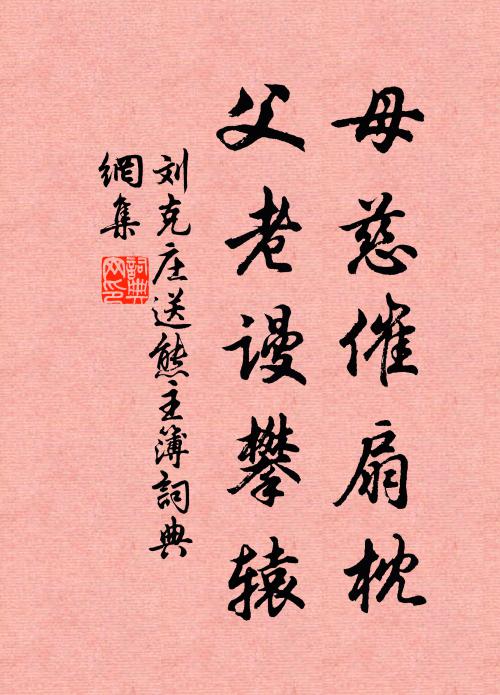 母慈催扇枕
父老谩攀辕
刘克庄送熊主簿詞典
網集
詞典
网印